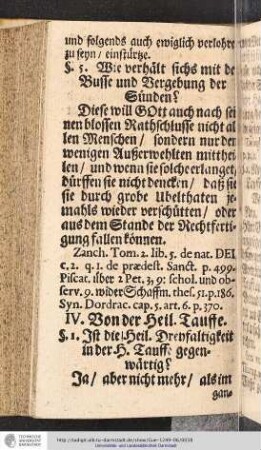 und folgends auch ewiglich verlohre
zu seyn / einstürtze.
§. 5. Wie verhält sichs mit de
Busse und Vergebung der
Sünden?
Diese will GOtt auch nach sei
nen blossen Rathschlusse nicht al
len Menschen / sondern nur den
wenigen Außerwehlten mitthei
len / und wenn sie solche erlanget,
dürffen sie nicht dencken / daß sie
sie durch grobe Ubelthaten je-
mahls wieder verschütten / oder
aus dem Stande der Rechtferti-
gung fallen können.
Zanch. Tom. 2. lib. 5. de nat. DEI
c. 2. q. 1. de prædest. Sanct. p. 499.
Piscat. über 2 Pet. 3, 9: schol. und ob-
serv. 9. wider Schaffm. thes. 51. p. 186.
Syn. Dordrac. cap. 5. art. 6. p. 370.
IV. Von der Heil. Tauffe.
§. 1. Ist die Heil. Dreyfaltigkeit
in der H. Tauffe gegen-
wärtig?
Ja / aber nicht mehr / als im
gan-
TECHNISCHE UNIVERSITÄT DARMSTADT
Universitäts- und Landesbibliothek Darmstadt